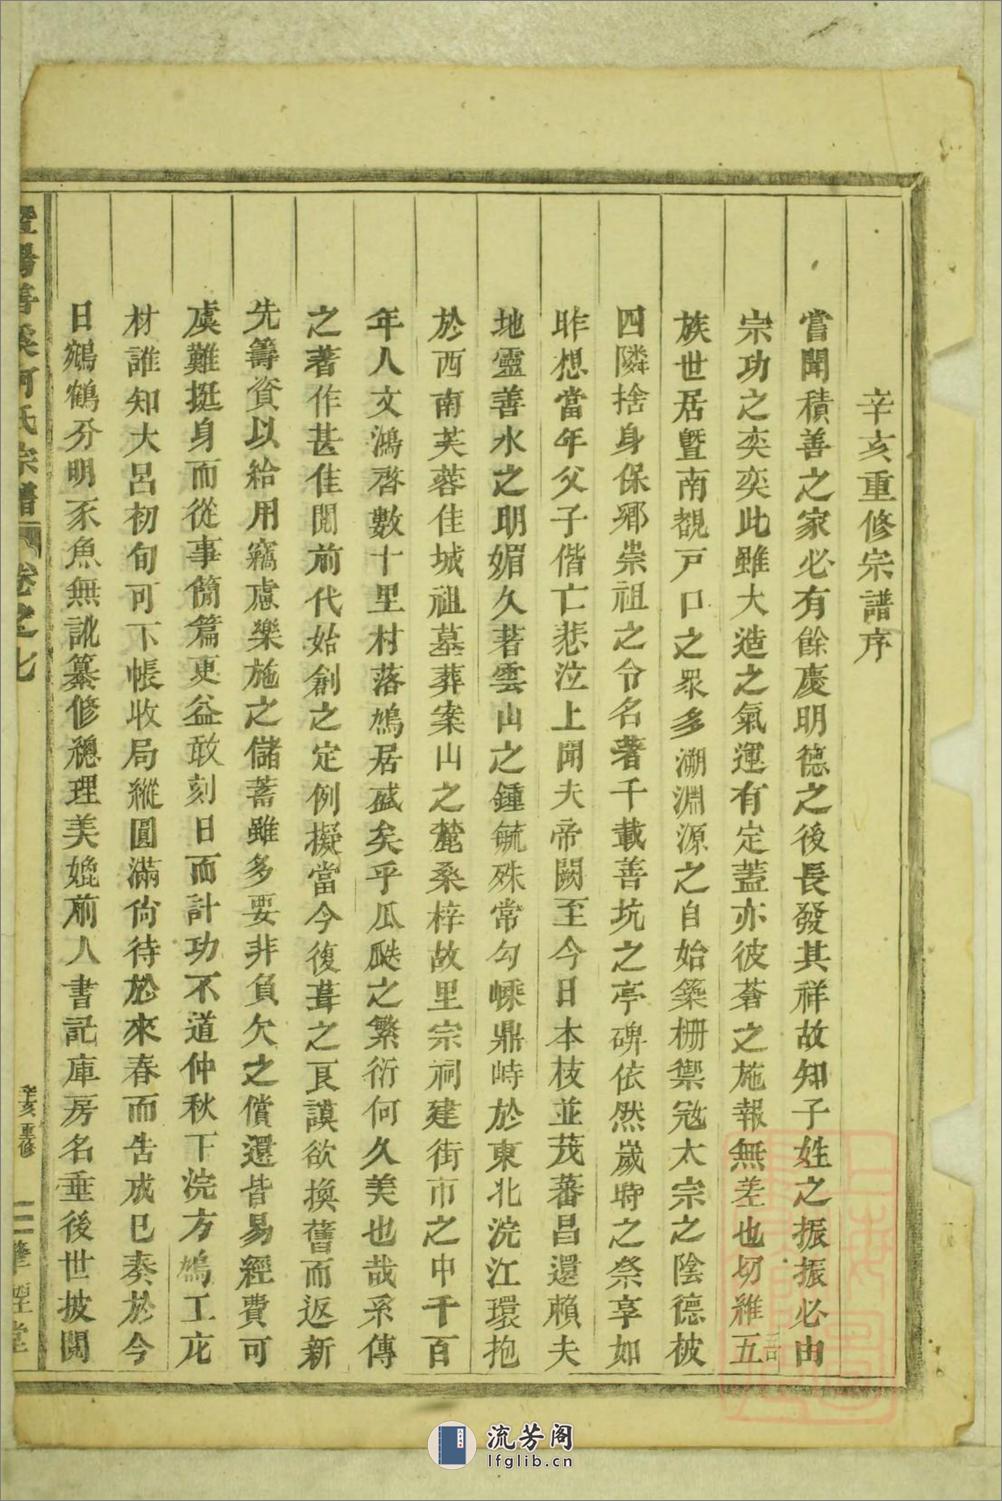 辛亥重修宗譜序
嘗聞積善之家必有餘慶明德之後長發其祥故知子姓之振振必由
宗功之奕奕此雖大造之氣運有定蓋亦彼蒼之施報無差也切維五
族世居暨南覩戸口之衆多溯淵源之自始築柵禦冦太宗之陰德被
四隣捨身保鄉崇祖之令名著千載善坑之亭碑依然歲時之祭享如
昨想當年父子偕亡悲泣上聞夫帝闕至今日本枝並茂蕃昌還賴夫
地靈善水之明媚久著雲山之鍾毓殊常勾嵊鼎峙於東北浣江環抱
於西南芙蓉佳城祖墓葬案山之麓桑梓故里宗祠建街市之中千百
年人文鴻啓數十里村落鳩居盛矣乎瓜瓞之繁衍何久美也哉系傳
之著作甚佳閱前代始創之定例擬當今復葺之良謨欲換舊而返新
先籌資以給用竊慮樂施之儲蓄雖多要非負欠之償還皆易經費可
虞難挺身而從事簡篇更益敢刻日而計功不道仲秋下浣方鳩工庀
材誰知大呂初旬可下帳收局縱圓滿尙待於來春而告成已奏於今
日鵷鶴分明豕魚無訛纂修總理美媲前人書記庫房名垂後世披閱
暨陽善溪何氏宗譜 卷之七 辛亥重修 二 堂
流芳阁
lfglib.cn